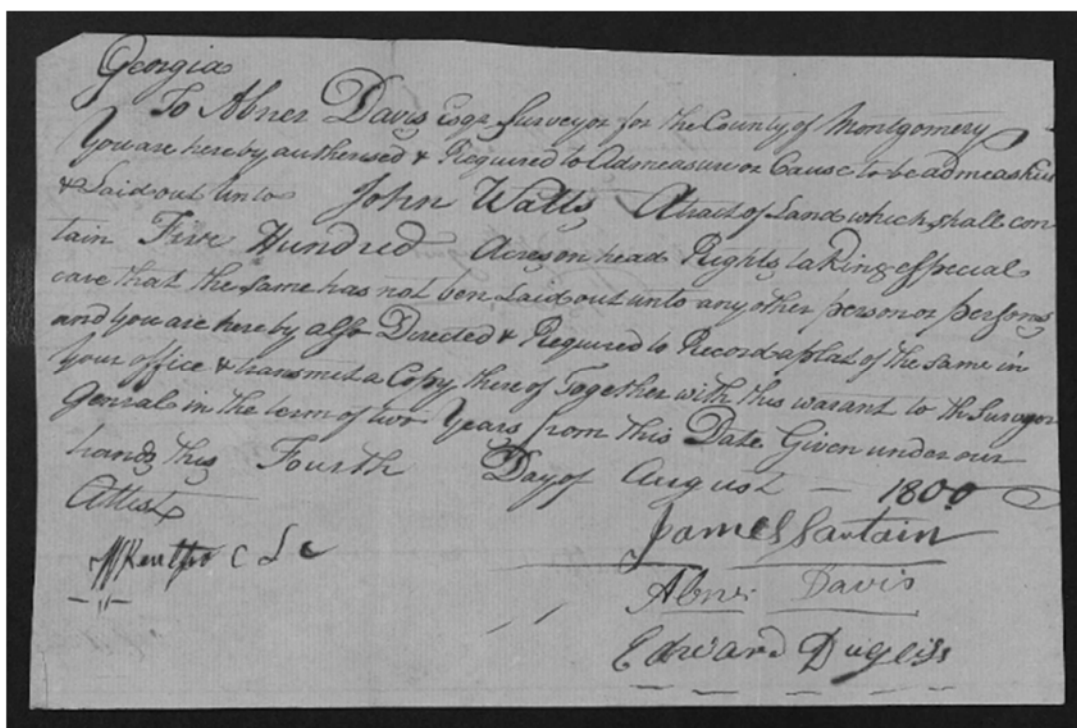 Georgia
To Abner Davis Esqr Surveyor for the County of Montgomery
You are hereby authorised & Required to Admeasure or Cause to be admeasured
& Laid out unto John Watts A tract of Land which shall con
tain Five Hundred Acres on head Rights taking especial
care that the same has not ben Laid out unto any other person or persons
and you are hereby also Directed & Required to Record a plat of the same in
your office & transmet a Copy there of Together with this warant to th Survayor
Genral in the term of two Years from this Date Given under our
hands this Fourth Day of August — 1800
Attest
James Sartain
C L C
Abner Davis
Edward